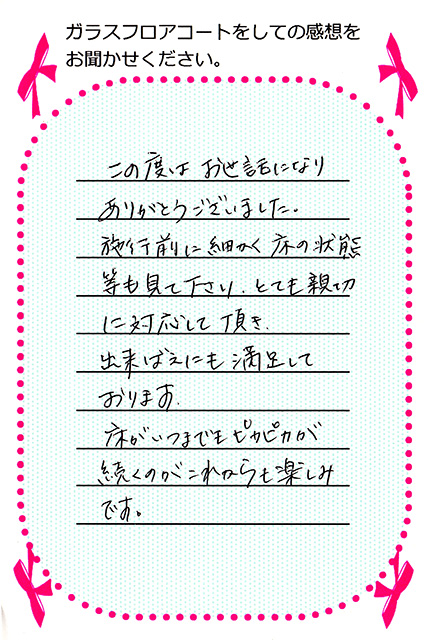 ガラスフロアコートをしての感想を
お聞かせください。
この度は お世話になり
ありがとうございました。
施行前に細かく床の状態
等も見て下さり、とても親切
に対応して頂き、
出来ばえにも満足して
おります。
床がいつまでもピカピカが
続くのがこれからも楽しみ
です。